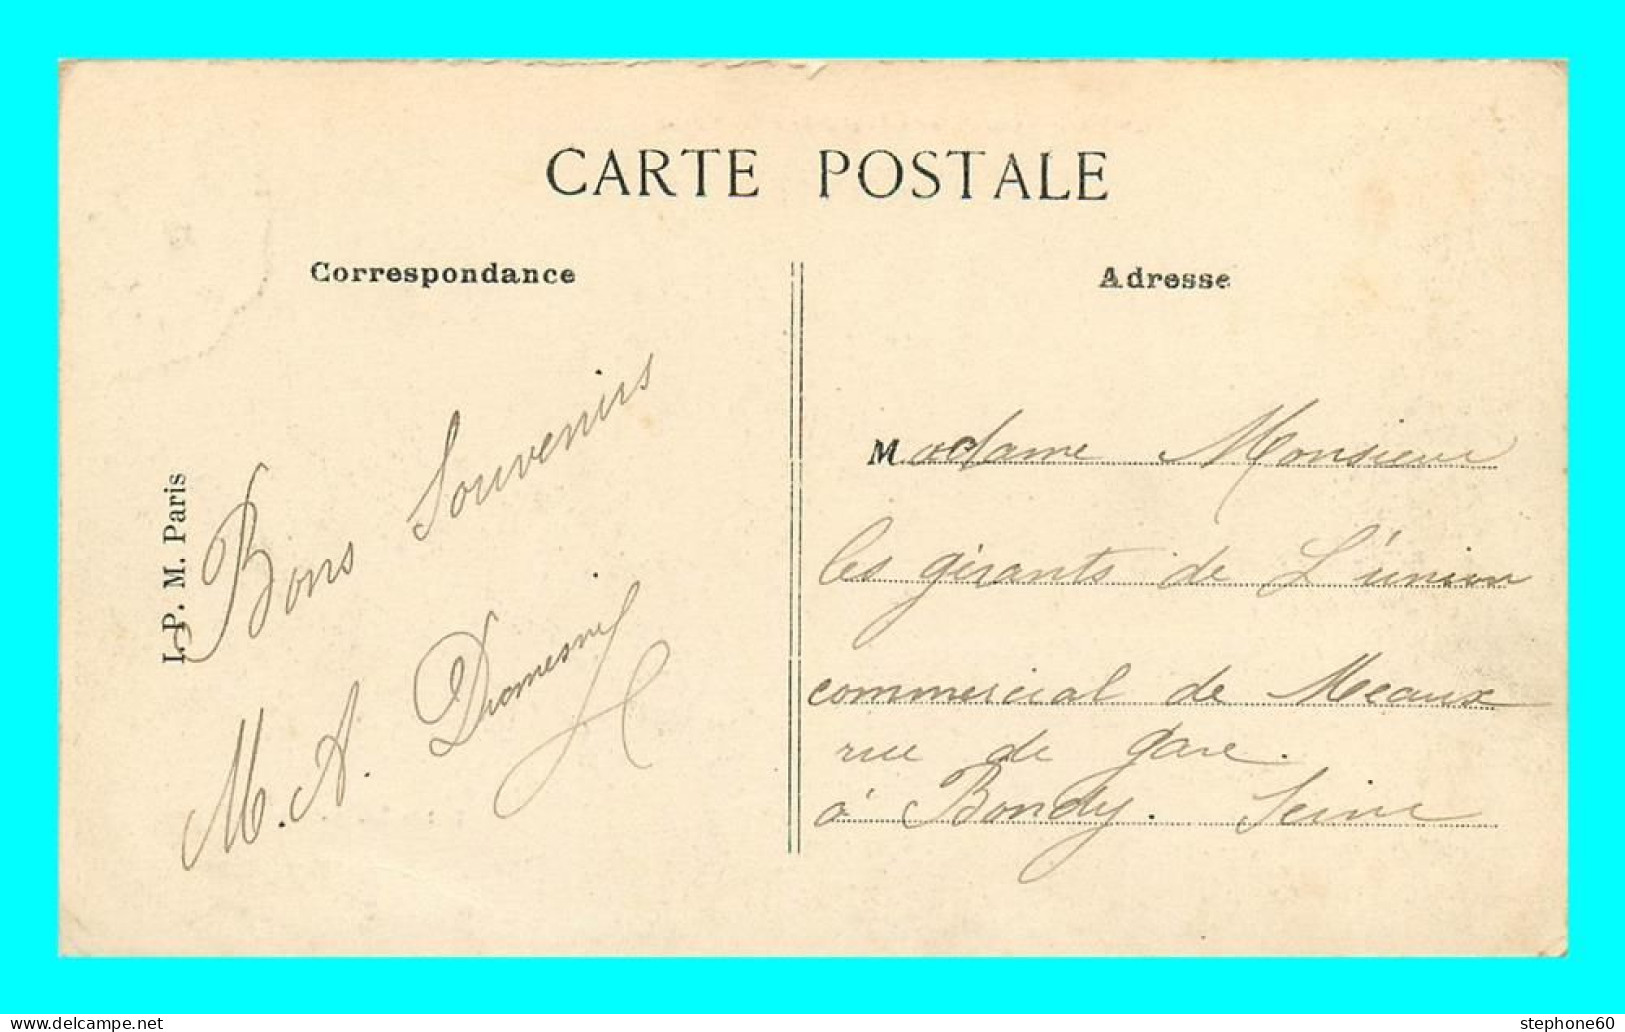 CARTE POSTALE
Correspondance
Bons Souvenirs
M. A.
I. P. M. Paris
Adresse
Madame Monsieur
les gérants de L'union
commercial de Meaux
rue de gare.
à Bondy. Seine
www.delcampe.net
stephone60